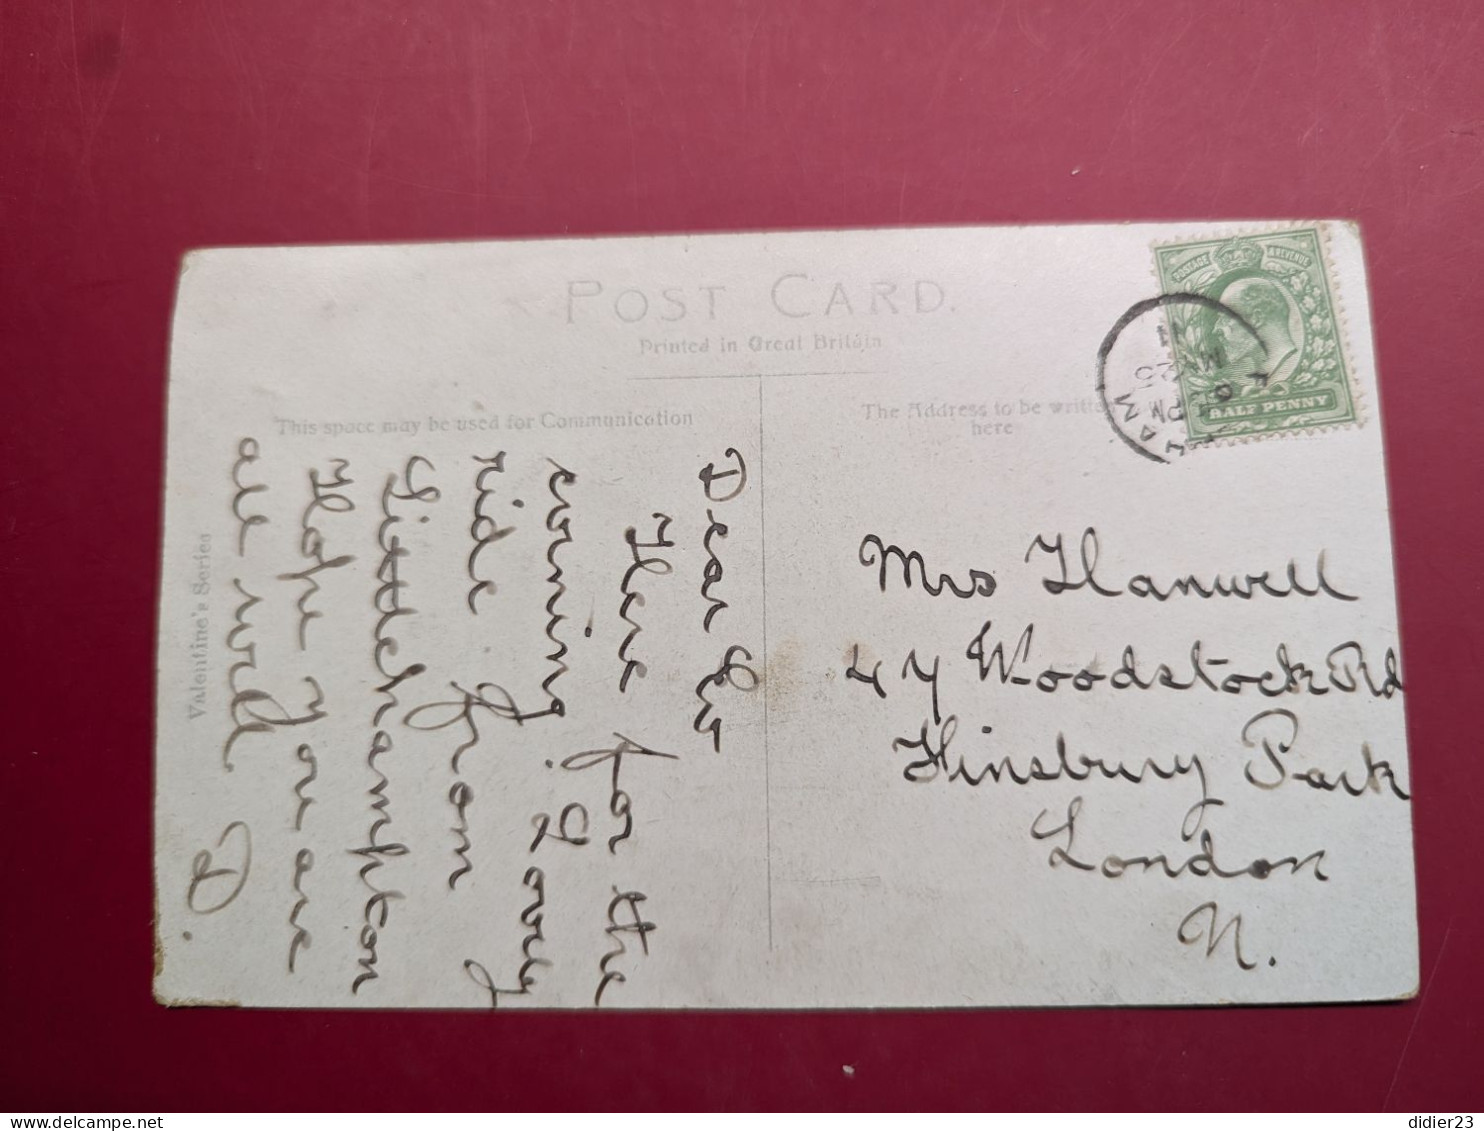 POST CARD.
Printed in Great Britain
This space may be used for Communication
The Address to be written
here
Valentine's Series
POSTAGE & REVENUE
HALF PENNY
MY 25
11
PM
Dear Liv
Here for the
evening. Lovely
ride from
Littlehampton
Hope you are
all well. D.
Mrs Hanwell
47 Woodstock Rd
Finsbury Park
London
N.
didier23